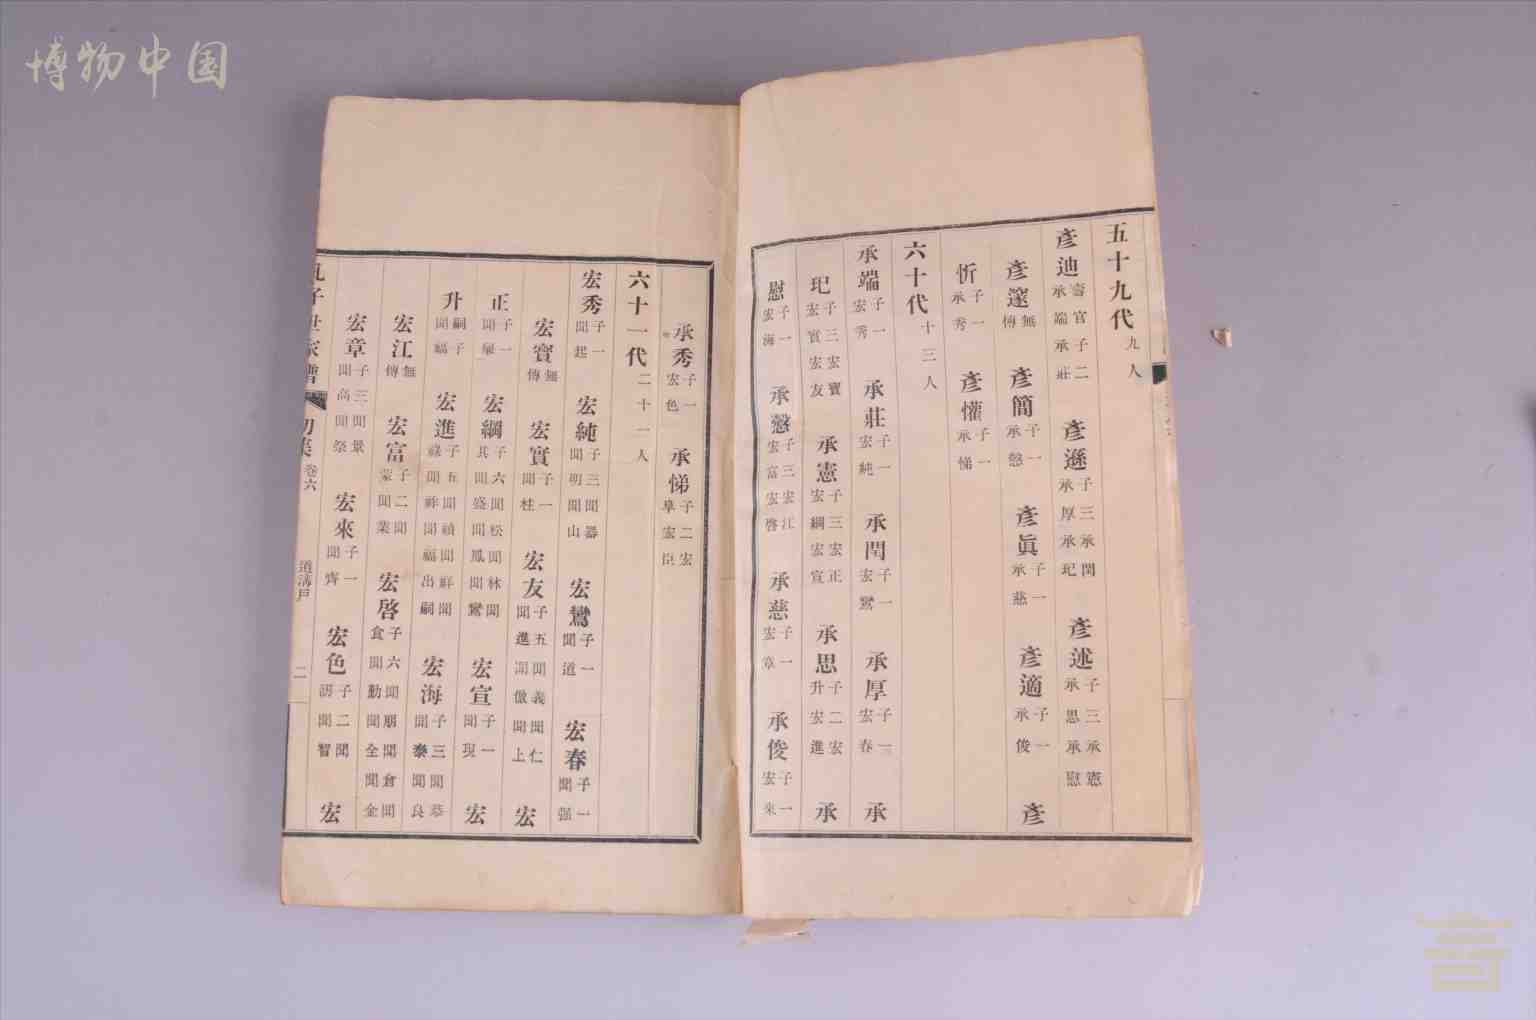 博物中国
五十九代九人
彥迪壽官子二承端承莊 彥遜子三承閏承厚承玘 彥述子三承憲承思承慰
彥邃無傳 彥簡子一承慤 彥眞子一承慈 彥適子一承俊 彥
忻子一承秀 彥懽子一承悌
六十代十三人
承端子一宏秀 承莊子一宏純 承閏子一宏鸞 承厚子一宏春 承
玘子三宏寶宏實宏友 承憲子三宏正宏綱宏宣 承思子二宏升宏進 承
慰子一宏海 承慤子三宏江宏富宏啓 承慈子一宏章 承俊子一宏來
承秀子一宏色 承悌子二宏臯宏臣
六十一代二十一人
宏秀子一聞起 宏純子三聞器聞明聞山 宏鸞子一聞道 宏春子一聞强
宏寶無傳 宏實子一聞桂 宏友子五聞義聞仁聞進聞倣聞上 宏
正子一聞 宏綱子六聞松聞林聞其聞盛聞鳳聞鸞 宏宣子一聞現 宏
升嗣子聞福 宏進子五聞禎聞祥聞祿聞祚聞福出嗣 宏海子三聞恭聞泰聞良
宏江無傳 宏富子二聞蒙聞業 宏啓子六聞朋聞倉聞食聞勤聞全聞金
宏章子三聞景聞高聞祭 宏來子一聞齊 宏色子二聞詔聞智 宏
孔子世家譜 初集卷六 道溝戶 二